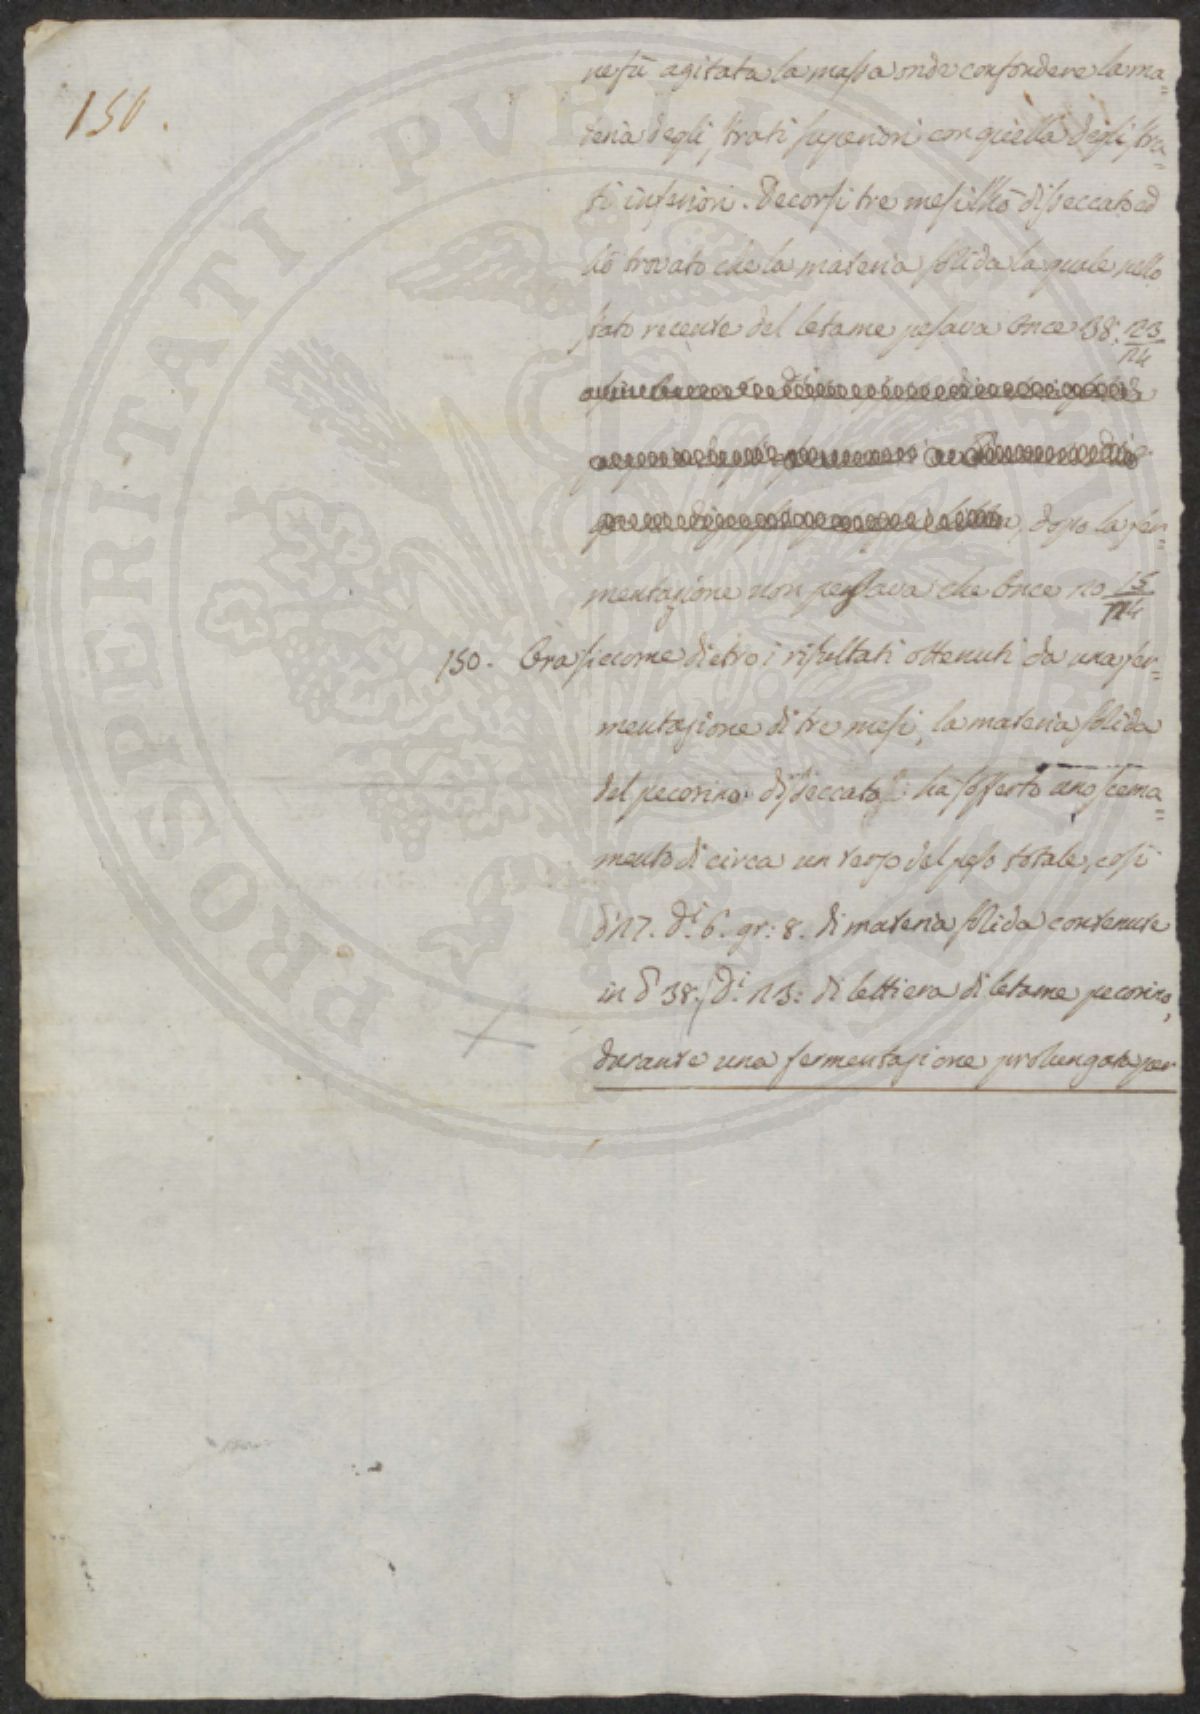 150.
ne fù agitata la massa onde confondere la ma=
teria degli strati superiori con quella degli stra=
ti inferiori. Decorsi tre mesi l'hò disseccato ed
hò trovato che la materia solida la quale nello
stato recente del letame pesava Once 38. 23/24
dopo la fer=
mentazione non pesava che Once 20 15/24
150. Ora siccome dietro i risultati ottenuti da una fer=
mentazione di tre mesi, la materia solida
del pecorino disseccato hà sofferto uno scema=
mento di circa un terzo del peso totale, così
27. 6. gr: 8. di materia solida contenute
in 38. 23: di lettiera di letame pecorino,
durante una fermentazione prolungata per
PROSPERITATI PVBLICAE